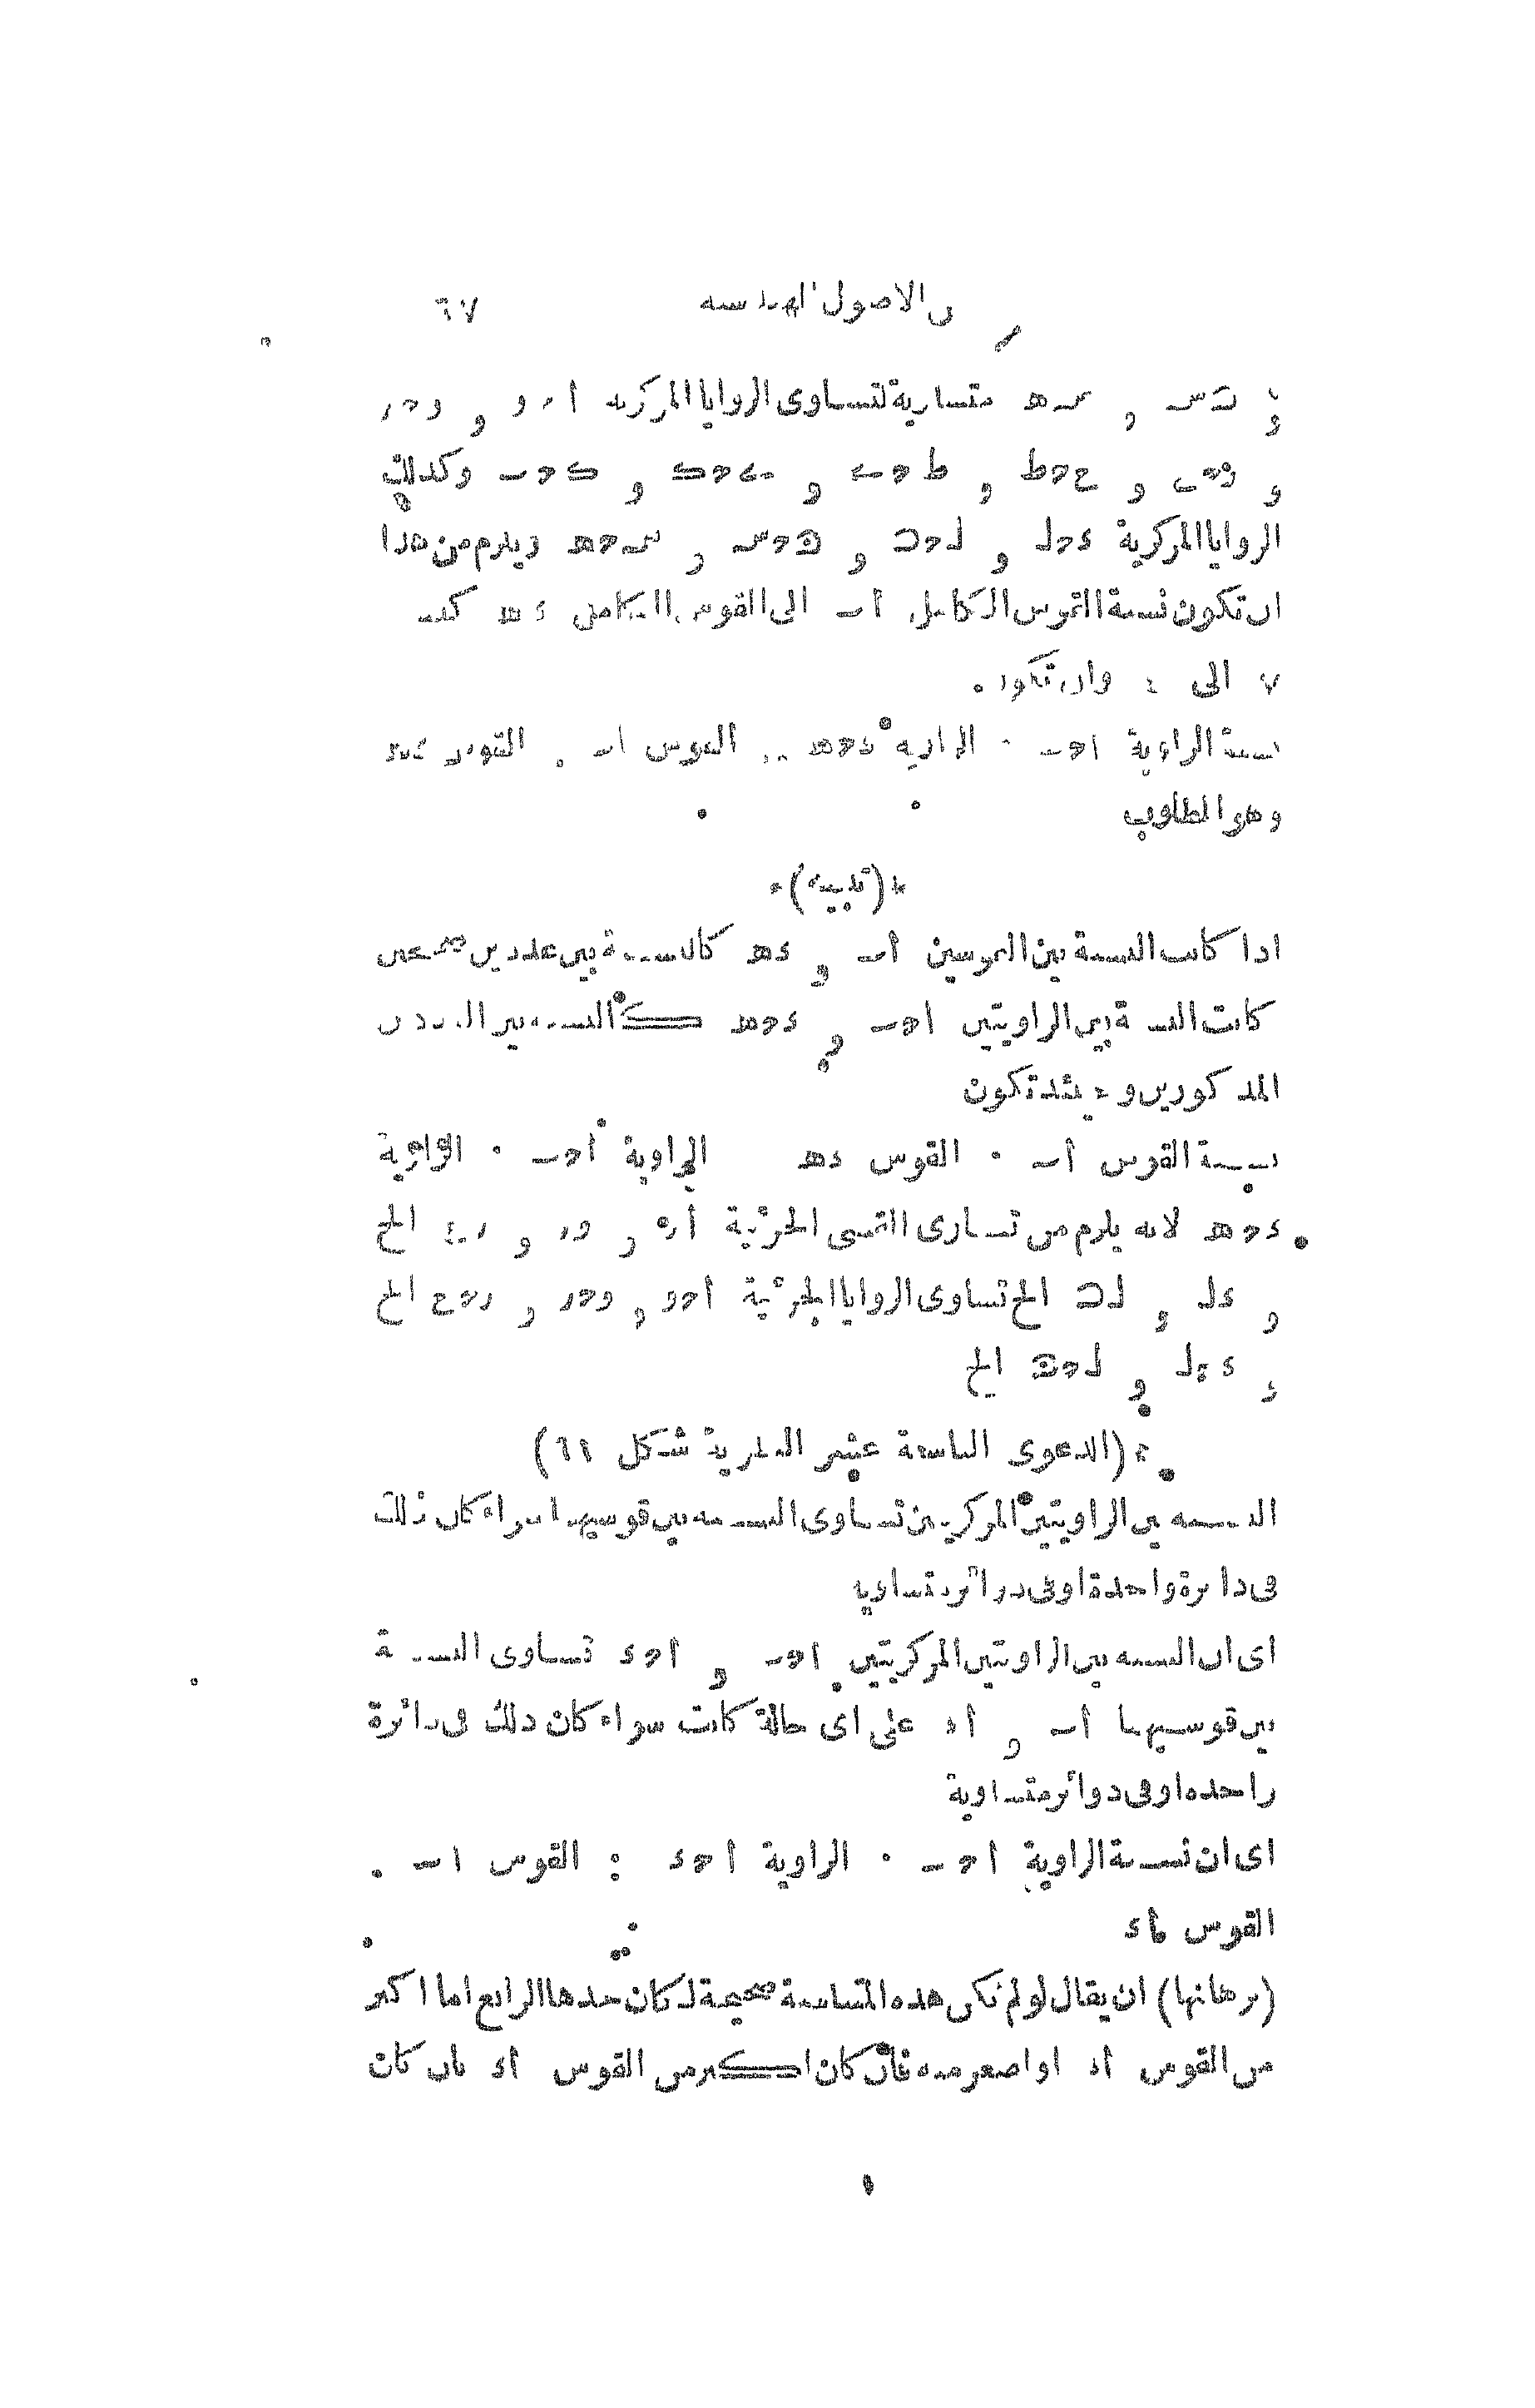 فى الاصول الهندسه ٦٧
و ت‍س و س‍ه متساوية لتساوى الزوايا المركزيه ا م و و و م ر
و ر م ح و ح م ط و ط م ى و ى م ك و ك م ب وكذلك
الزوايا المركزية د م ل و ل م ت و ت م س و س م ه ويلزم من هذا
ان تكون نسبة القوس الكامل اب الى القوس الكامل ده كنسبة
٧ الى ٤ وان تكون
نسبة الزاوية ا م ب : الزاوية د م ه :: القوس اب : القوس ده
وهو المطلوب
*(تنبيه)*
اذا كانت النسبة بين القوسين اب و ده كالنسبة بين عددين صحيحين
كانت النسبة بين الزاويتين ا م ب و د م ه كالنسبه بين العددين
المذكورين وحينئذ تكون
نسبة القوس اب : القوس ده :: الزاوية ا م ب : الزاوية
د م ه لانه يلزم من تساوى القسى الجزئية ا و و و ر و ر ح الخ
و د ل و ل ت الخ تساوى الزوايا الجزئية ا م و و و م ر و ر م ح الخ
و د م ل و ل م ت الخ
*(الدعوى التاسعة عشر النظرية شكل ٦١)
النسبه بين الزاويتين المركزيتين تساوى النسبه بين قوسيهما سواء كان ذلك
فى دائرة واحدة او فى دوائر متساويه
اى ان النسبه بين الزاويتين المركزيتين ا م ب و ا م د تساوى النسبة
بين قوسيهما اب و اد على اى حالة كانت سواء كان ذلك فى دائرة
واحده او فى دوائر متساوية
اى ان نسبة الزاوية ا م ب : الزاوية ا م د :: القوس اب :
القوس اد
(برهانها) ان يقال لو لم تكن هذه المتناسبة صحيحة لكان حدها الرابع اما اكبر
من القوس اد او اصغر منه فان كان اكبر من القوس اد بان كان